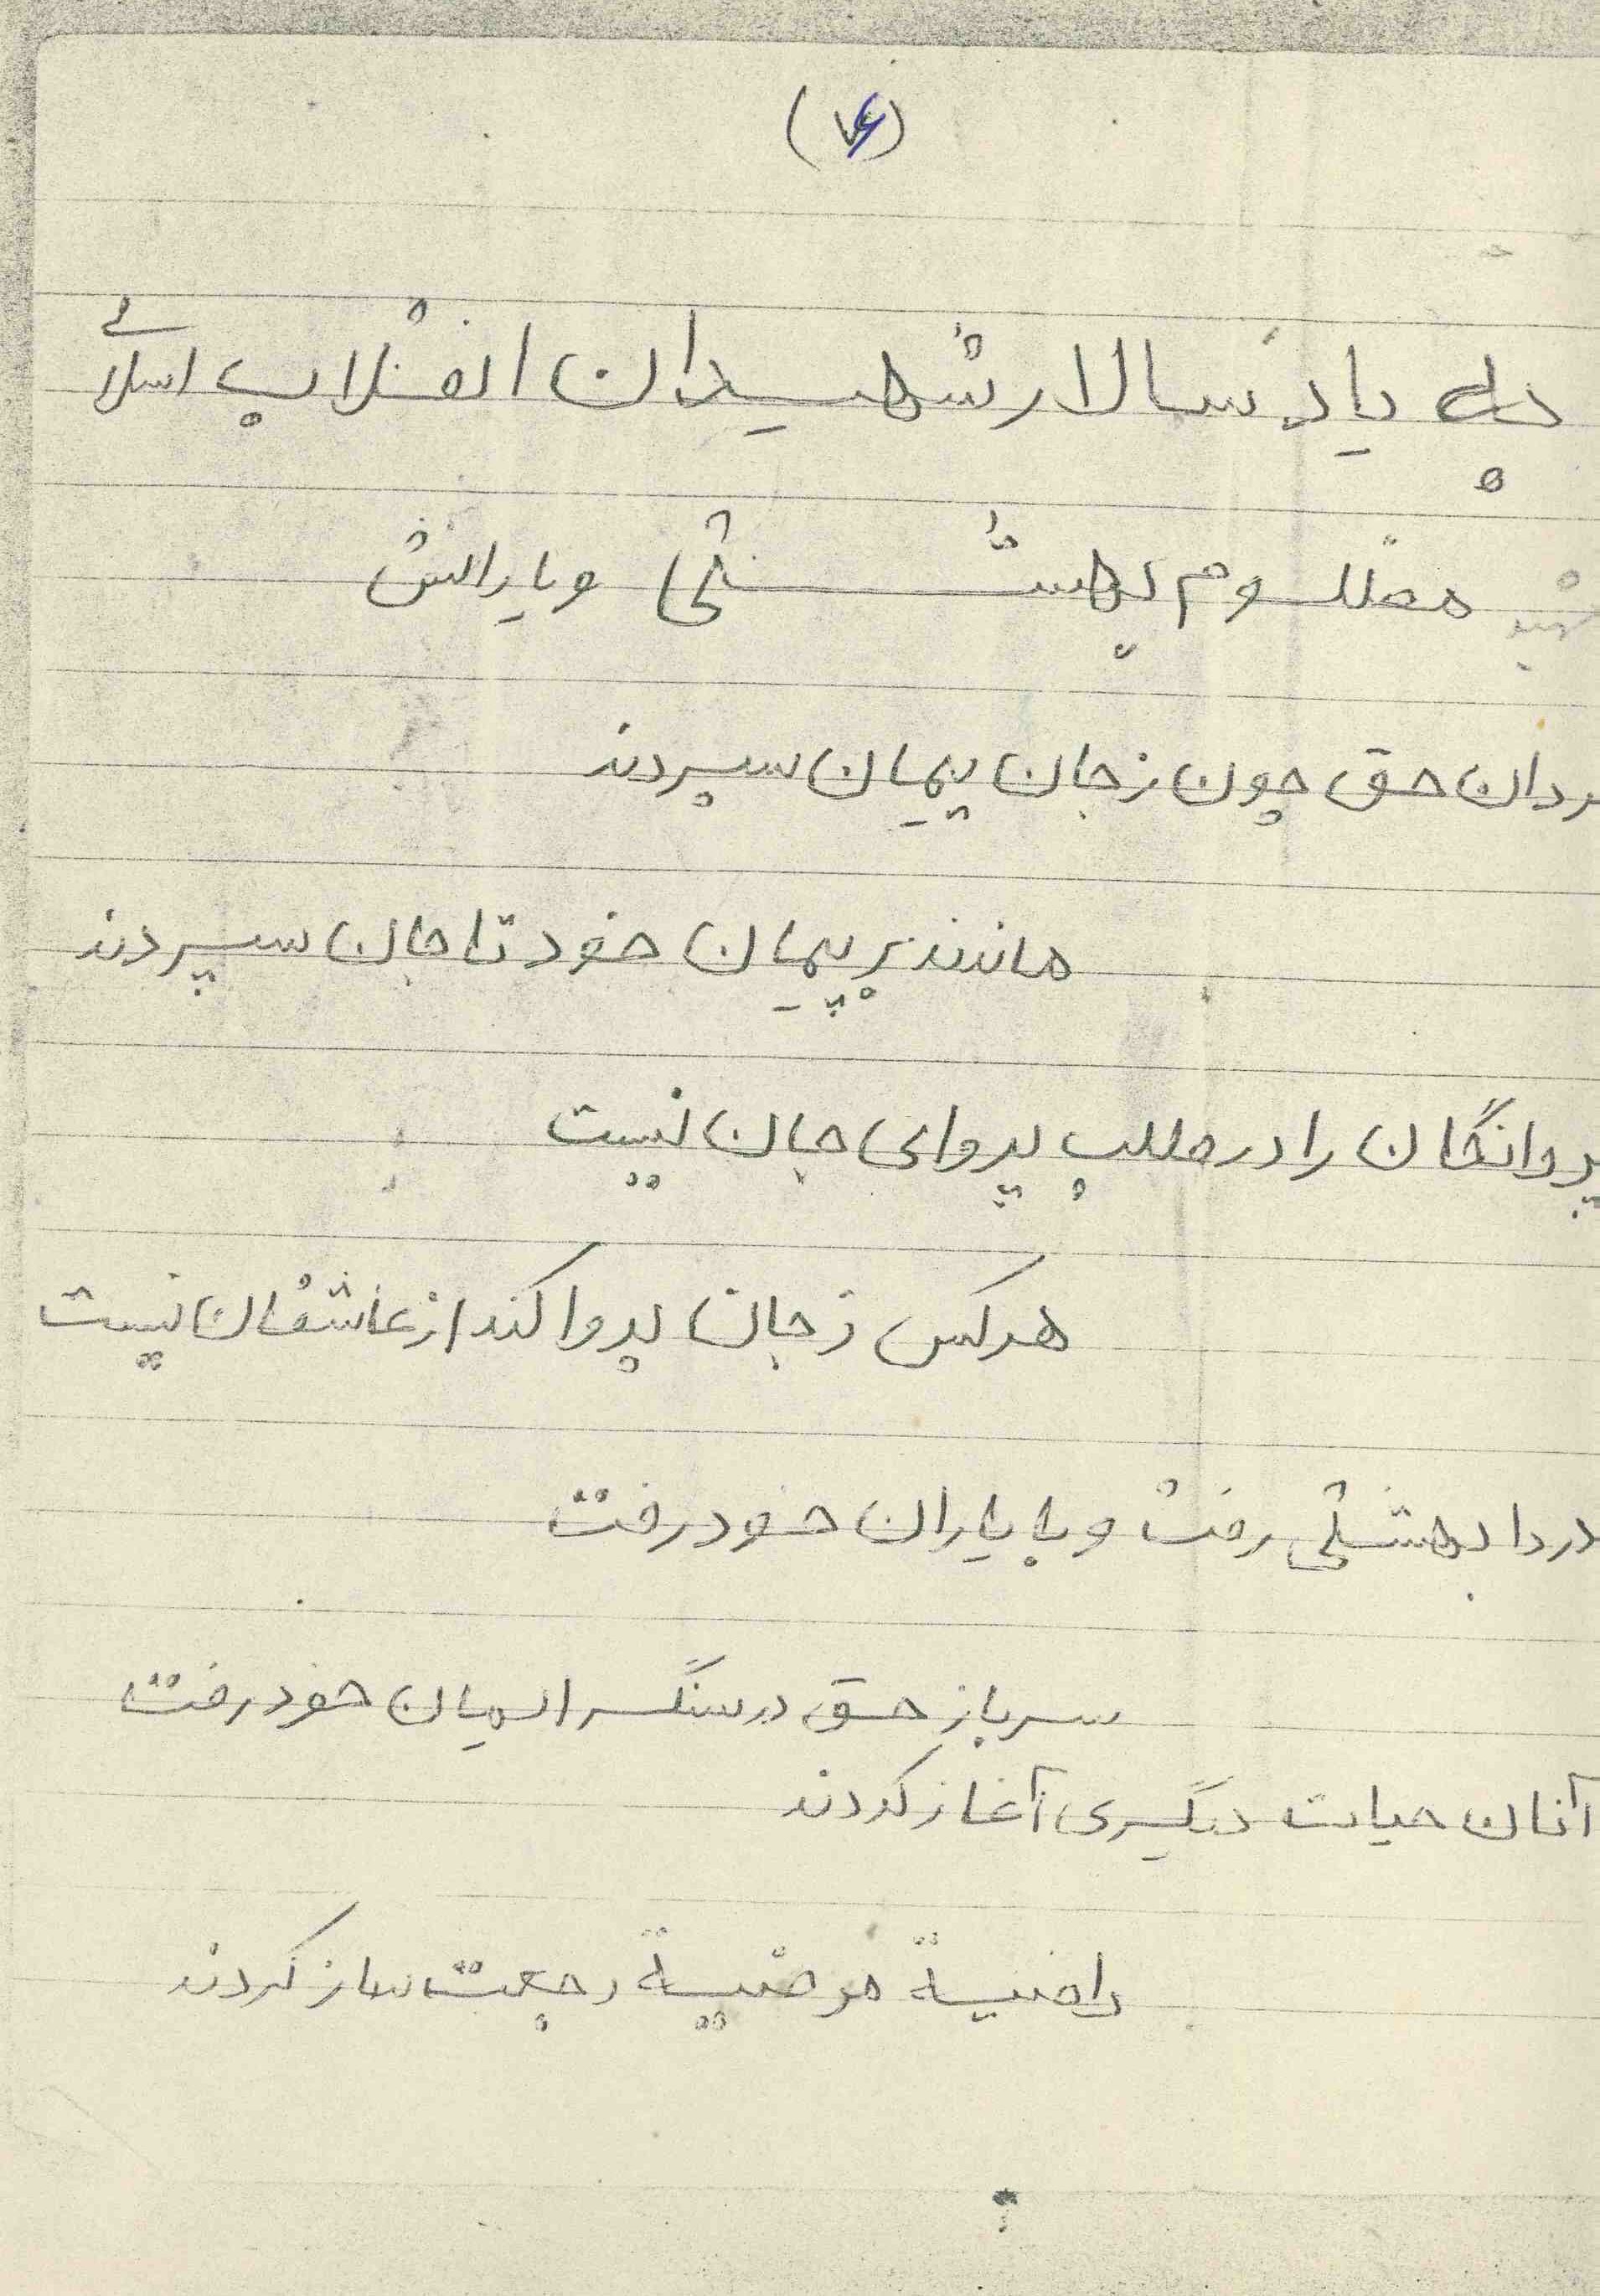 (۷۶)
به یاد سالار شهیدان انقلاب اسلامی
شهید مظلوم بهشتی و یارانش
مردان حق چون ز جان پیمان سپردند
ماندند بر پیمان خود تا جان سپردند
پروانگان را در طلب پروای جان نیست
هر کس ز جان پروا کند از عاشقان نیست
دردا بهشتی رفت و با یاران خود رفت
سرباز حق در سنگر ایمان خود رفت
آنان حیات دیگری آغاز کردند
راضیة مرضیة رجعت ساز کردند